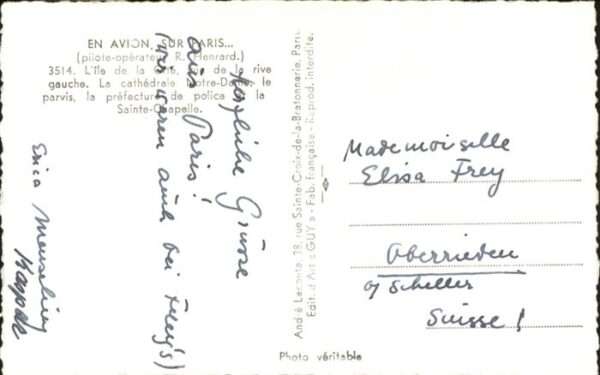 EN AVION, SUR PARIS...
(pilote-opérateur R. Henrard.)
3514. L'Ile de la Cité, vue de la rive
gauche. La cathédrale Notre-Dame, le
parvis, la préfecture de police et la
Sainte-Chapelle.
Herzliche Grüsse
aus Paris!
(wir waren auch bei Frey's)
Erica
André Leconte, 38, rue Sainte-Croix-de-la-Bretonnerie, Paris
Edit. d'Art « GUY » - Fab. française - Reprod. interdite.
Mademoiselle
Elisa Frey
Oberrieden
c/ Scheller
Suisse!
Photo véritable